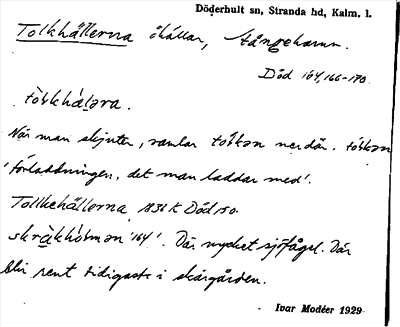 Döderhult sn, Stranda hd, Kalm. l.
Tolkhällerna öhällar, Tångehamn.
Död 164,166-170.
tòḷkhàḷəra.
När man skjuter, ramlar tóḷkən ner där. tóḷkən
'förladdningen, det man laddar med'.
Tolkehällerna 1836 K Död 150.
skrä̀khòḷmən '164'. Där mycket sjöfågel. Där
blir rent tidigast i skärgården.
Ivar Modéer 1929